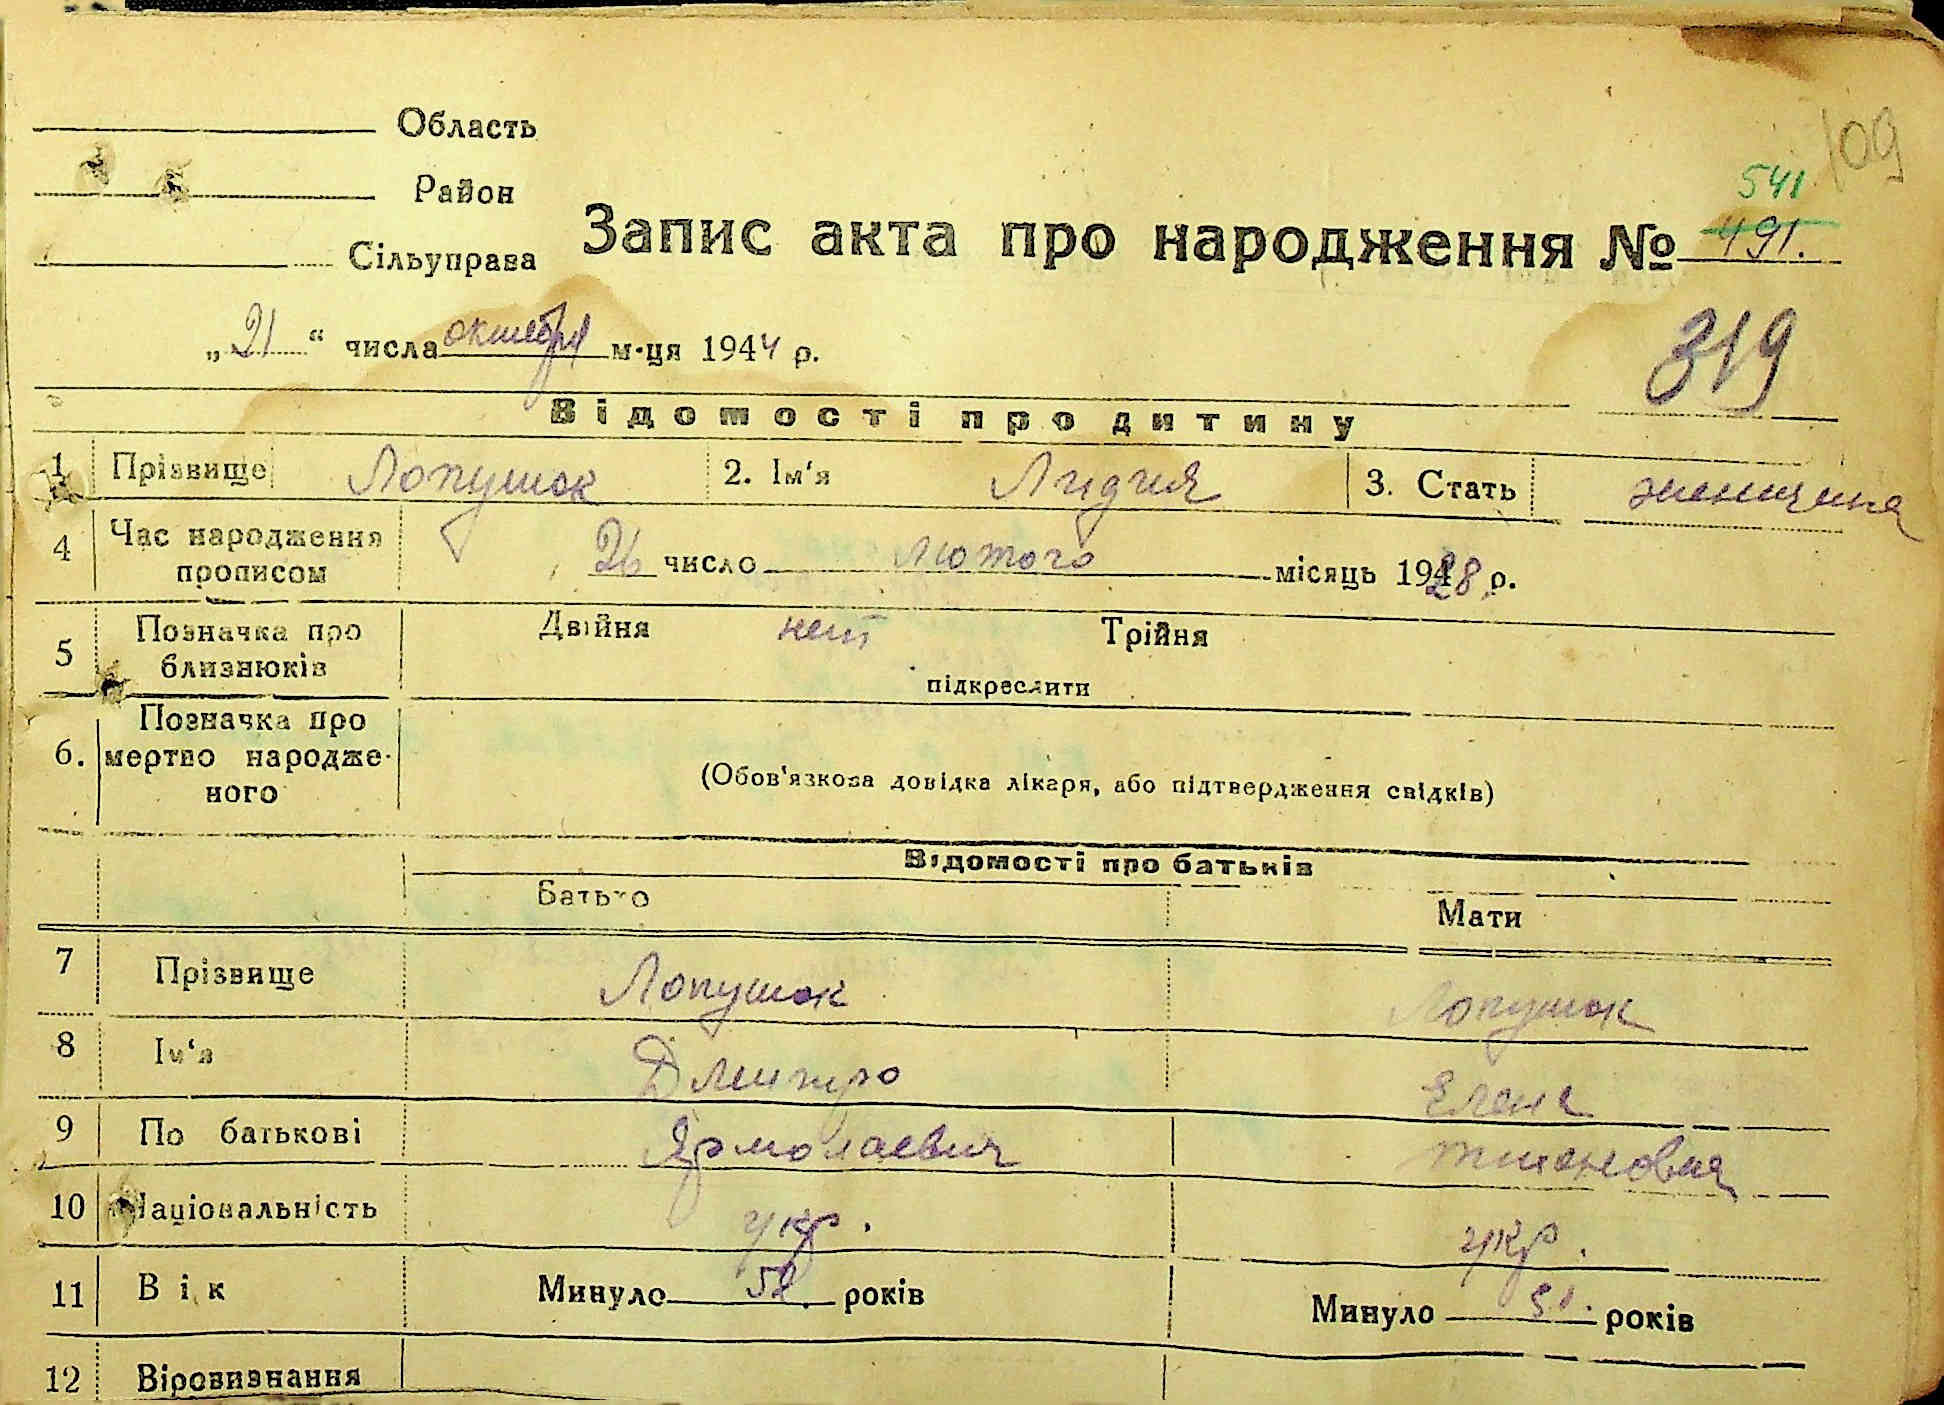 Область
109
Район
541
Запис акта про народження № 491.
Сільуправа
„21“ числа октября м-ця 1944 р.
319
Відомості про дитину
1 Прізвище Лопушок 2. Ім'я Лидия 3. Стать женщина
4 Час народження прописом 26 число лютого місяць 1928 р.
5 Позначка про близнюків Двійня нет Трійня
підкреслити
6. Позначка про мертво народже-
ного
(Обов'язкова довідка лікаря, або підтвердження свідків)
Відомості про батьків
Батько Мати
7 Прізвище Лопушок Лопушок
8 Ім'я Дмитро Елена
9 По батькові Ярмолаевич
10 Національність укр. укр.
11 Вік Минуло 52. років Минуло 51. років
12 Віровизнання